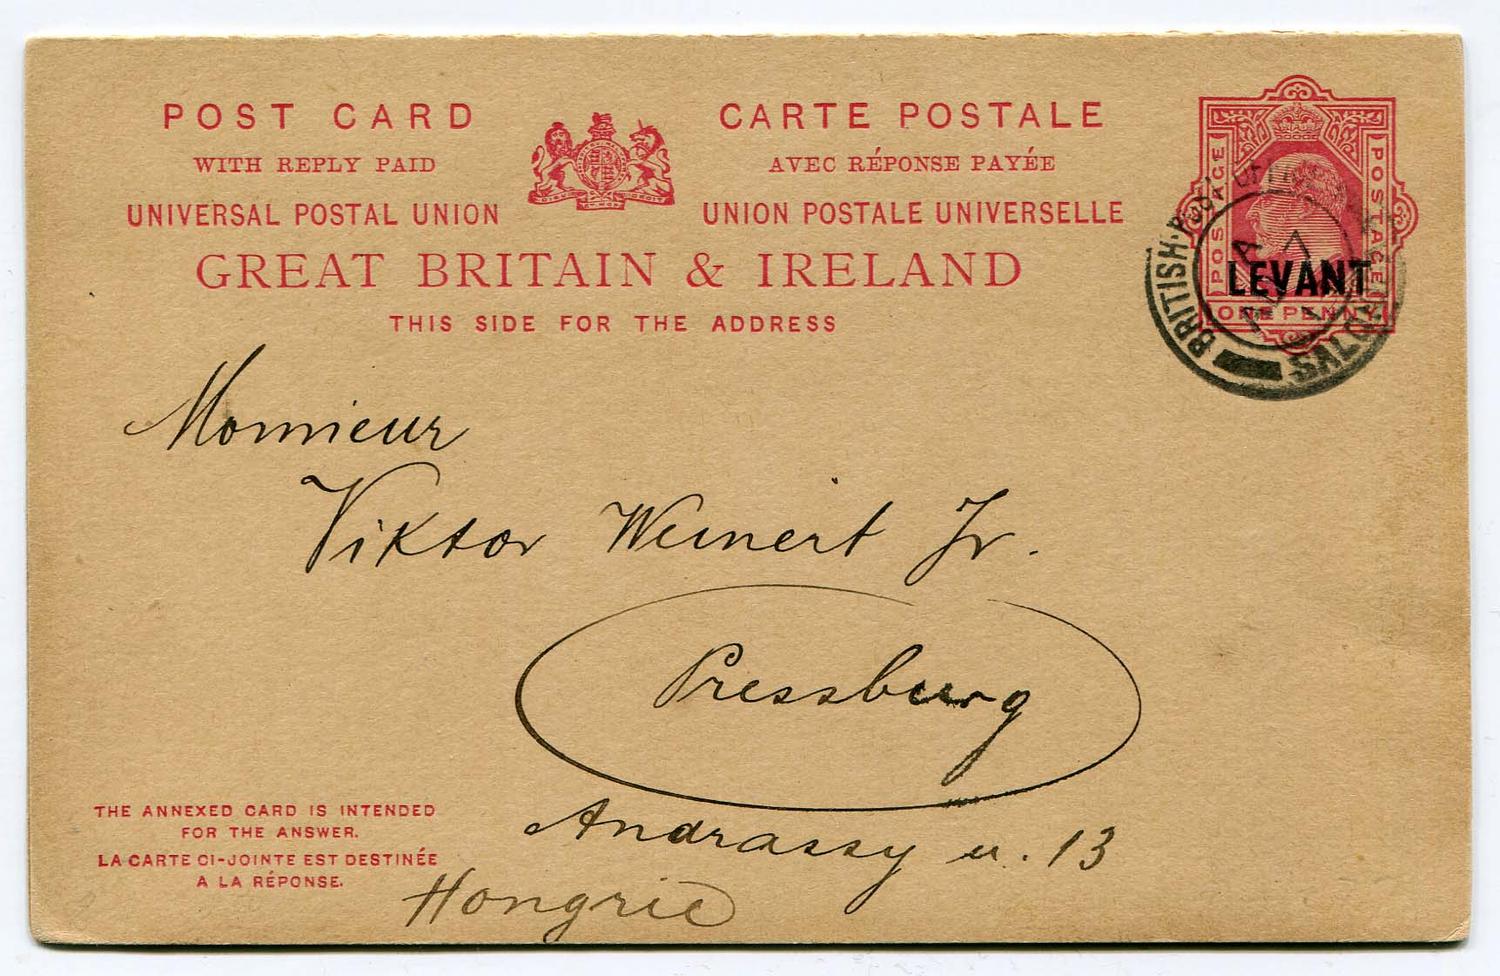 POST CARD
WITH REPLY PAID
UNIVERSAL POSTAL UNION
CARTE POSTALE
AVEC RÉPONSE PAYÉE
UNION POSTALE UNIVERSELLE
GREAT BRITAIN & IRELAND
THIS SIDE FOR THE ADDRESS
POSTAGE
POSTAGE
LEVANT
ONE PENNY
BRITISH·POST
Monsieur
Viktor Weinert Jr.
Pressburg
Andrassy u. 13
Hongrie
THE ANNEXED CARD IS INTENDED
FOR THE ANSWER.
LA CARTE CI-JOINTE EST DESTINÉE
A LA RÉPONSE.